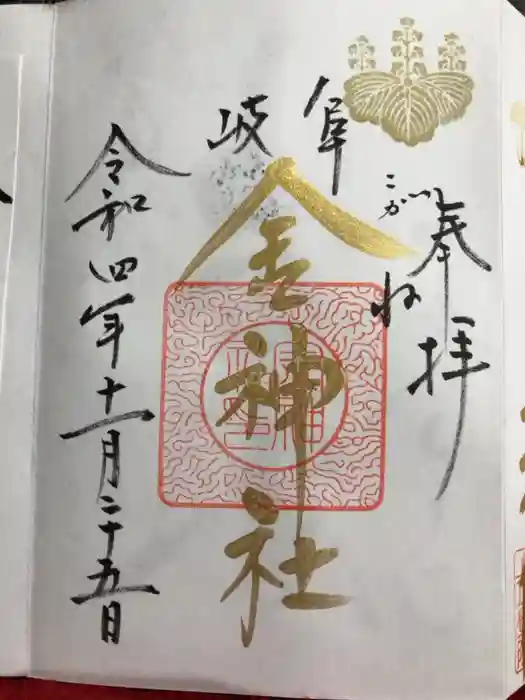 奉拝
岐阜
こがね
金神社
令和四年十一月二十五日